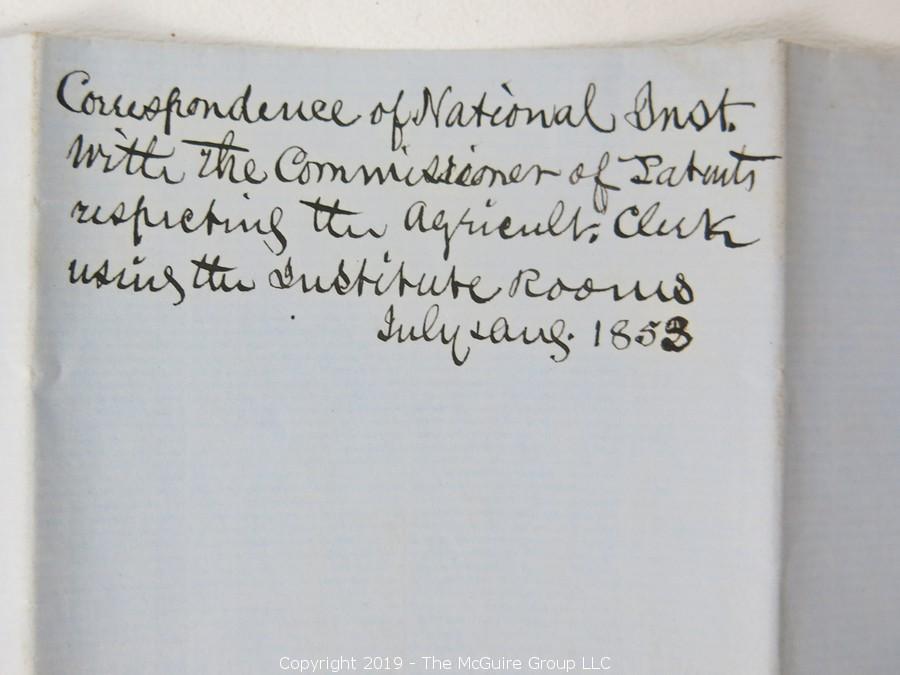 Correspondence of National Inst.
With The Commissioner of Patents
respecting the Agricult. Clerk
using the Institute Rooms
July & Aug. 1853
Copyright 2019 - The McGuire Group LLC